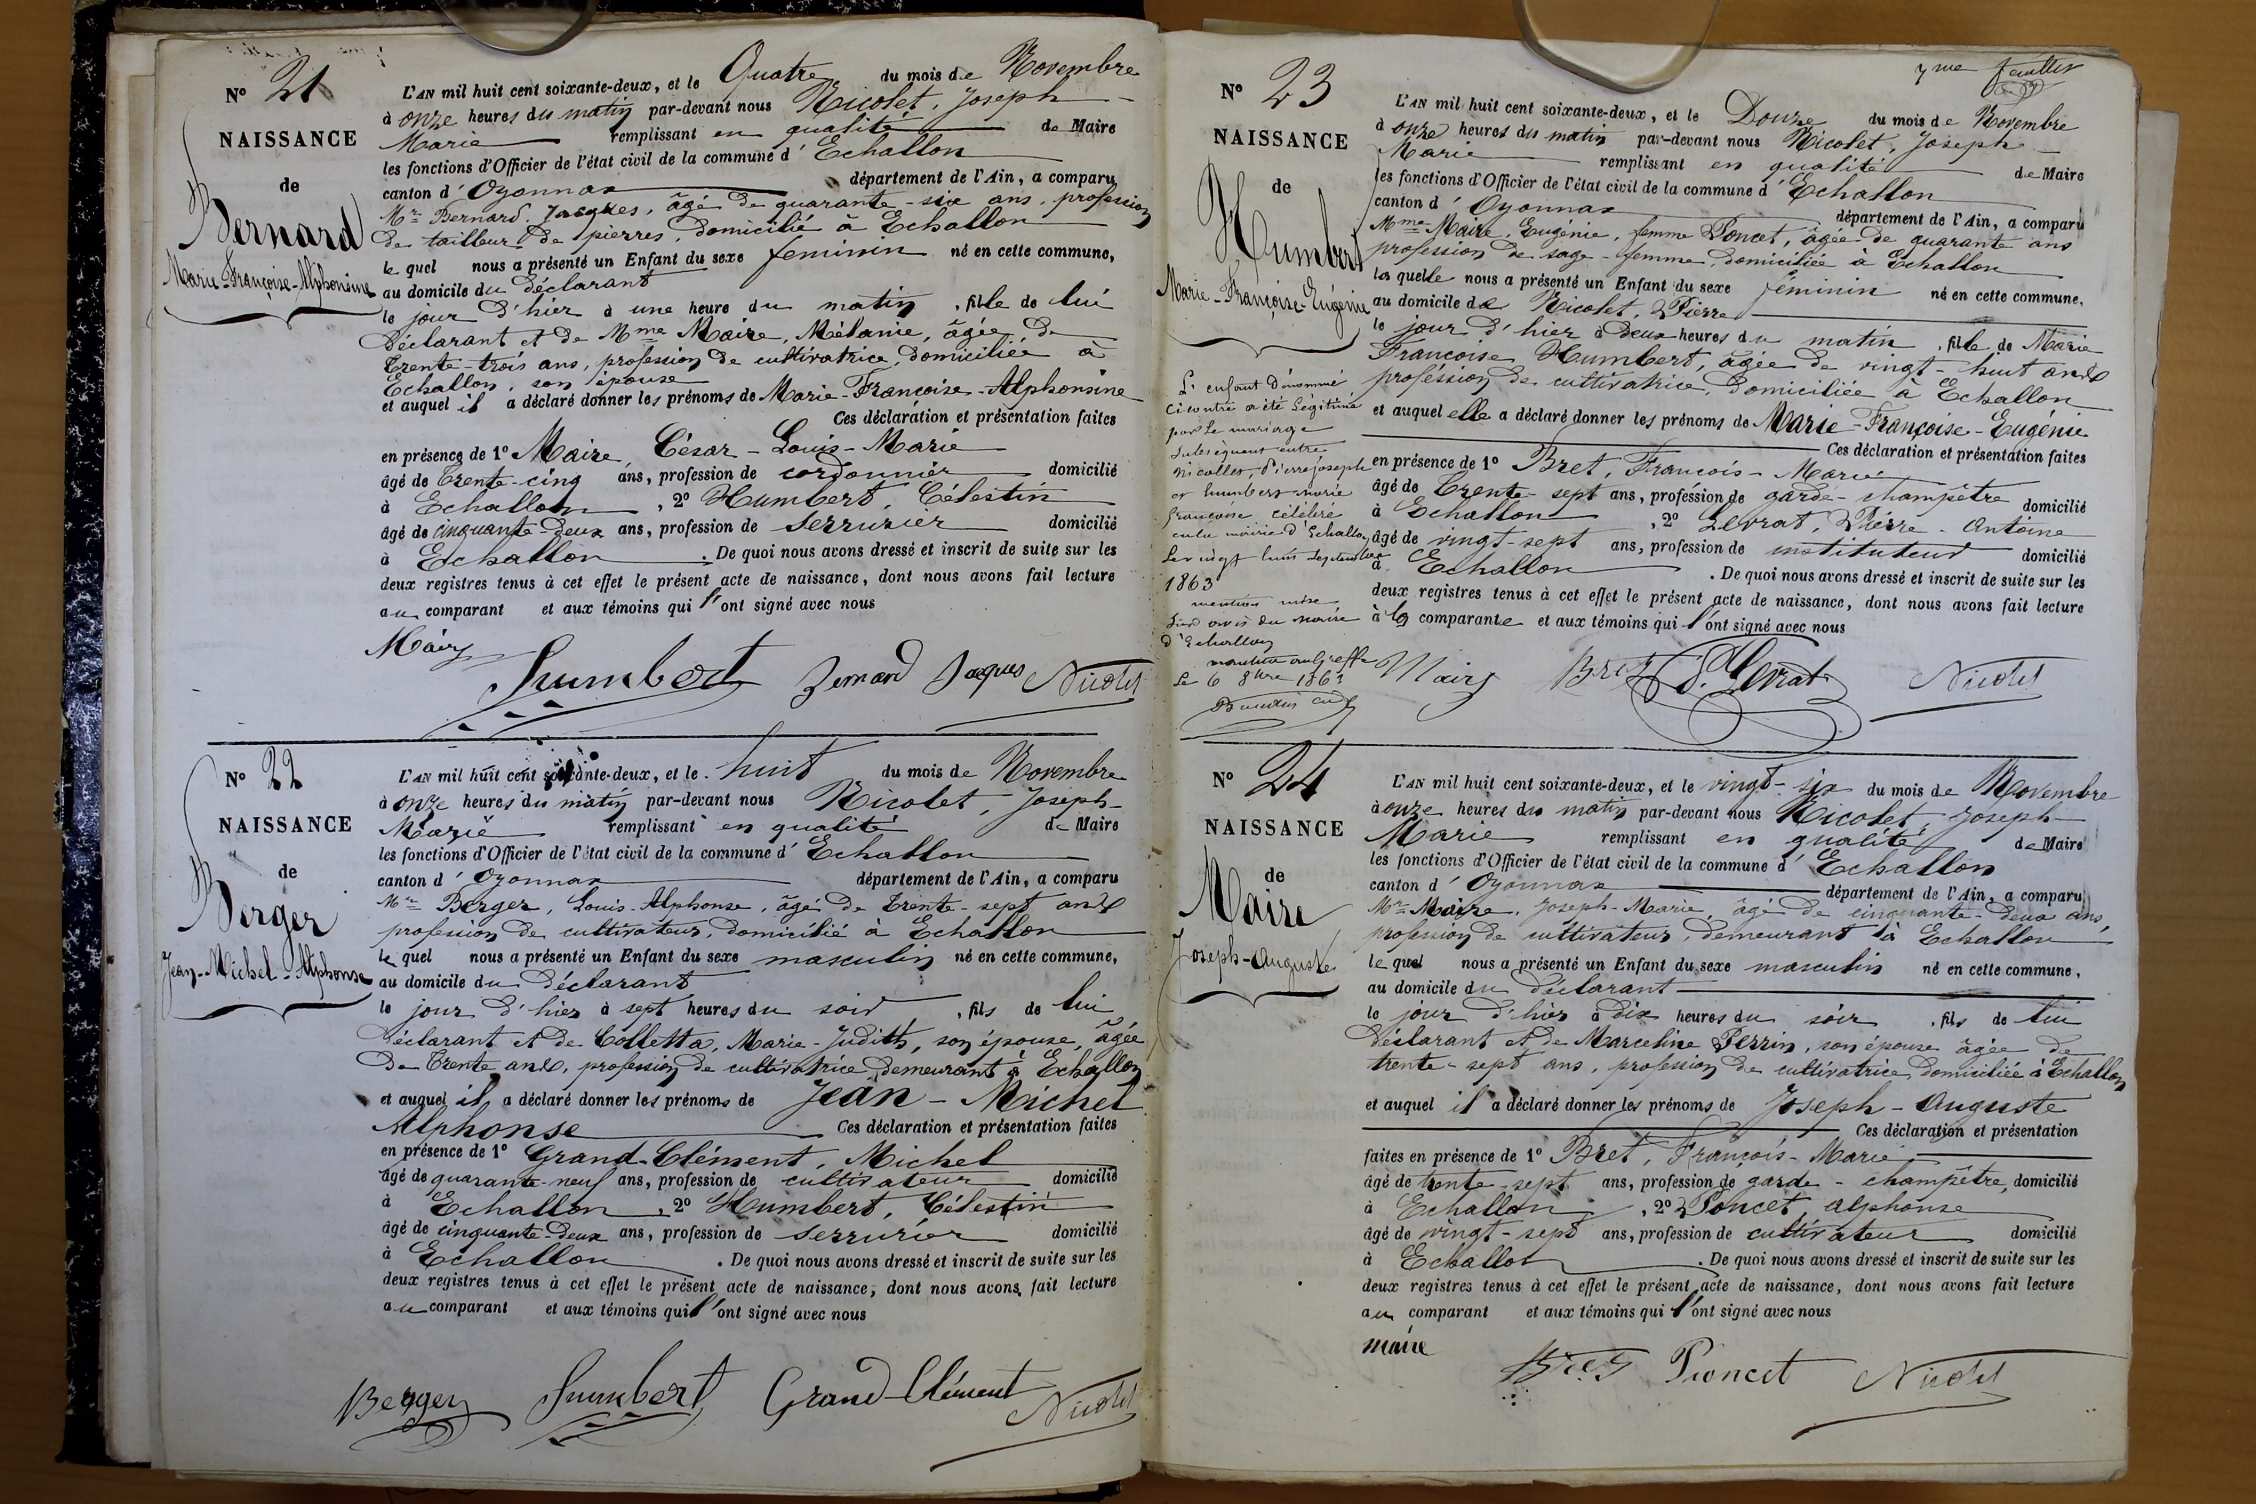 N° 21
NAISSANCE
de
Bernard
Marie-Françoise-Alphonsine
L'AN mil huit cent soixante-deux, et le Quatre du mois de Novembre
à onze heures du matin par-devant nous Nicolet, Joseph-
Marie remplissant en qualité de Maire
les fonctions d'Officier de l'état civil de la commune d' Echallon
canton d' Oyonnax département de l'Ain, a comparu
Mr Bernard Jacques, âgé de quarante-six ans, profession
de tailleur de pierres, domicilié à Echallon
le quel nous a présenté un Enfant du sexe feminin né en cette commune,
au domicile du déclarant
le jour d'hier à une heure du matin, fille de lui
déclarant et de Mme Maire, Mélanie, âgée de
trente-trois ans, profession de cultivatrice, domiciliée à
Echallon, son épouse
et auquel il a déclaré donner les prénoms de Marie-Françoise-Alphonsine
Ces déclaration et présentation faites
en présence de 1° Maire César-Louis-Marie
âgé de trente-cinq ans, profession de cordonnier domicilié
à Echallon, 2° Humbert, Célestin
âgé de cinquante-deux ans, profession de serrurier domicilié
à Echallon. De quoi nous avons dressé et inscrit de suite sur les
deux registres tenus à cet effet le présent acte de naissance, dont nous avons fait lecture
au comparant et aux témoins qui l'ont signé avec nous
Humbert Bernard Jacques Nicolet
N° 22
NAISSANCE
de
Berger
Jean-Michel-Alphonse
L'AN mil huit cent soixante-deux, et le huit du mois de Novembre
à onze heures du matin par-devant nous Nicolet, Joseph-
Marie remplissant en qualité de Maire
les fonctions d'Officier de l'état civil de la commune d' Echallon
canton d' Oyonnax département de l'Ain, a comparu
Mr Berger, Louis-Alphonse, âgé de trente-sept ans
profession de cultivateur, domicilié à Echallon
le quel nous a présenté un Enfant du sexe masculin né en cette commune,
au domicile du déclarant
le jour d'hier à sept heures du soir, fils de lui
déclarant et de Colletta, Marie-Judith, son épouse, âgée
de trente ans, profession de cultivatrice demeurant à Echallon
et auquel il a déclaré donner les prénoms de Jean-Michel
Alphonse Ces déclaration et présentation faites
en présence de 1° Grand-Clément, Michel
âgé de quarante-neuf ans, profession de cultivateur domicilié
à Echallon, 2° Humbert, Célestin
âgé de cinquante-deux ans, profession de serrurier domicilié
à Echallon. De quoi nous avons dressé et inscrit de suite sur les
deux registres tenus à cet effet le présent acte de naissance, dont nous avons fait lecture
au comparant et aux témoins qui l'ont signé avec nous
Berger Humbert Grand-Clément Nicolet
7me feuillet
N° 23
NAISSANCE
de
Humbert
Marie-Françoise-Eugénie
L'enfant dénommé
ci contre a été légitimé
par le mariage
subséquent entre
Nicollet, Pierre joseph
et humbert marie
françoise célébré
en la mairie d'Echallon
Le vingt huit septembre
1863
mention mise
sur avis du maire
d'Echallon
au Greffe
Le 6 8bre 1863
L'AN mil huit cent soixante-deux, et le Douze du mois de Novembre
à onze heures du matin par-devant nous Nicolet, Joseph-
Marie remplissant en qualité de Maire
les fonctions d'Officier de l'état civil de la commune d' Echallon
canton d' Oyonnax département de l'Ain, a comparu
Mme Maire, Eugénie, femme Poncet, âgée de quarante ans
profession de sage-femme, domiciliée à Echallon
laquelle nous a présenté un Enfant du sexe féminin né en cette commune,
au domicile de Nicolet, Pierre
le jour d'hier à deux heures du matin, fille de Marie
Françoise Humbert, âgée de vingt-huit ans
profession de cultivatrice, domiciliée à Echallon
et auquel elle a déclaré donner les prénoms de Marie-Françoise-Eugénie
Ces déclaration et présentation faites
en présence de 1° Bret, François-Marie
âgé de trente-sept ans, profession de garde-champêtre domicilié
à Echallon, 2° Levrat, Pierre-Antoine
âgé de vingt-sept ans, profession de instituteur domicilié
à Echallon. De quoi nous avons dressé et inscrit de suite sur les
deux registres tenus à cet effet le présent acte de naissance, dont nous avons fait lecture
à la comparante et aux témoins qui l'ont signé avec nous
Bret Levrat Nicolet
N° 24
NAISSANCE
de
Maire
Joseph-Auguste
L'AN mil huit cent soixante-deux, et le vingt-six du mois de Novembre
à onze heures du matin par-devant nous Nicolet, Joseph-
Marie remplissant en qualité de Maire
les fonctions d'Officier de l'état civil de la commune d' Echallon
canton d' Oyonnax département de l'Ain, a comparu
Mr Maire, Joseph-Marie, âgé de cinquante-deux ans,
profession de cultivateur, demeurant à Echallon
le quel nous a présenté un Enfant du sexe masculin né en cette commune,
au domicile du déclarant
le jour d'hier à dix heures du soir, fils de lui
déclarant et de Marceline Perrin, son épouse âgée de
trente-sept ans, profession de cultivatrice, domiciliée à Echallon
et auquel il a déclaré donner les prénoms de Joseph-Auguste
Ces déclaration et présentation
faites en présence de 1° Bret, François-Marie
âgé de trente-sept ans, profession de garde-champêtre, domicilié
à Echallon, 2° Poncet, alphonse
âgé de vingt-sept ans, profession de cultivateur domicilié
à Echallon. De quoi nous avons dressé et inscrit de suite sur les
deux registres tenus à cet effet le présent acte de naissance, dont nous avons fait lecture
au comparant et aux témoins qui l'ont signé avec nous
maire
Bret Poncet Nicolet